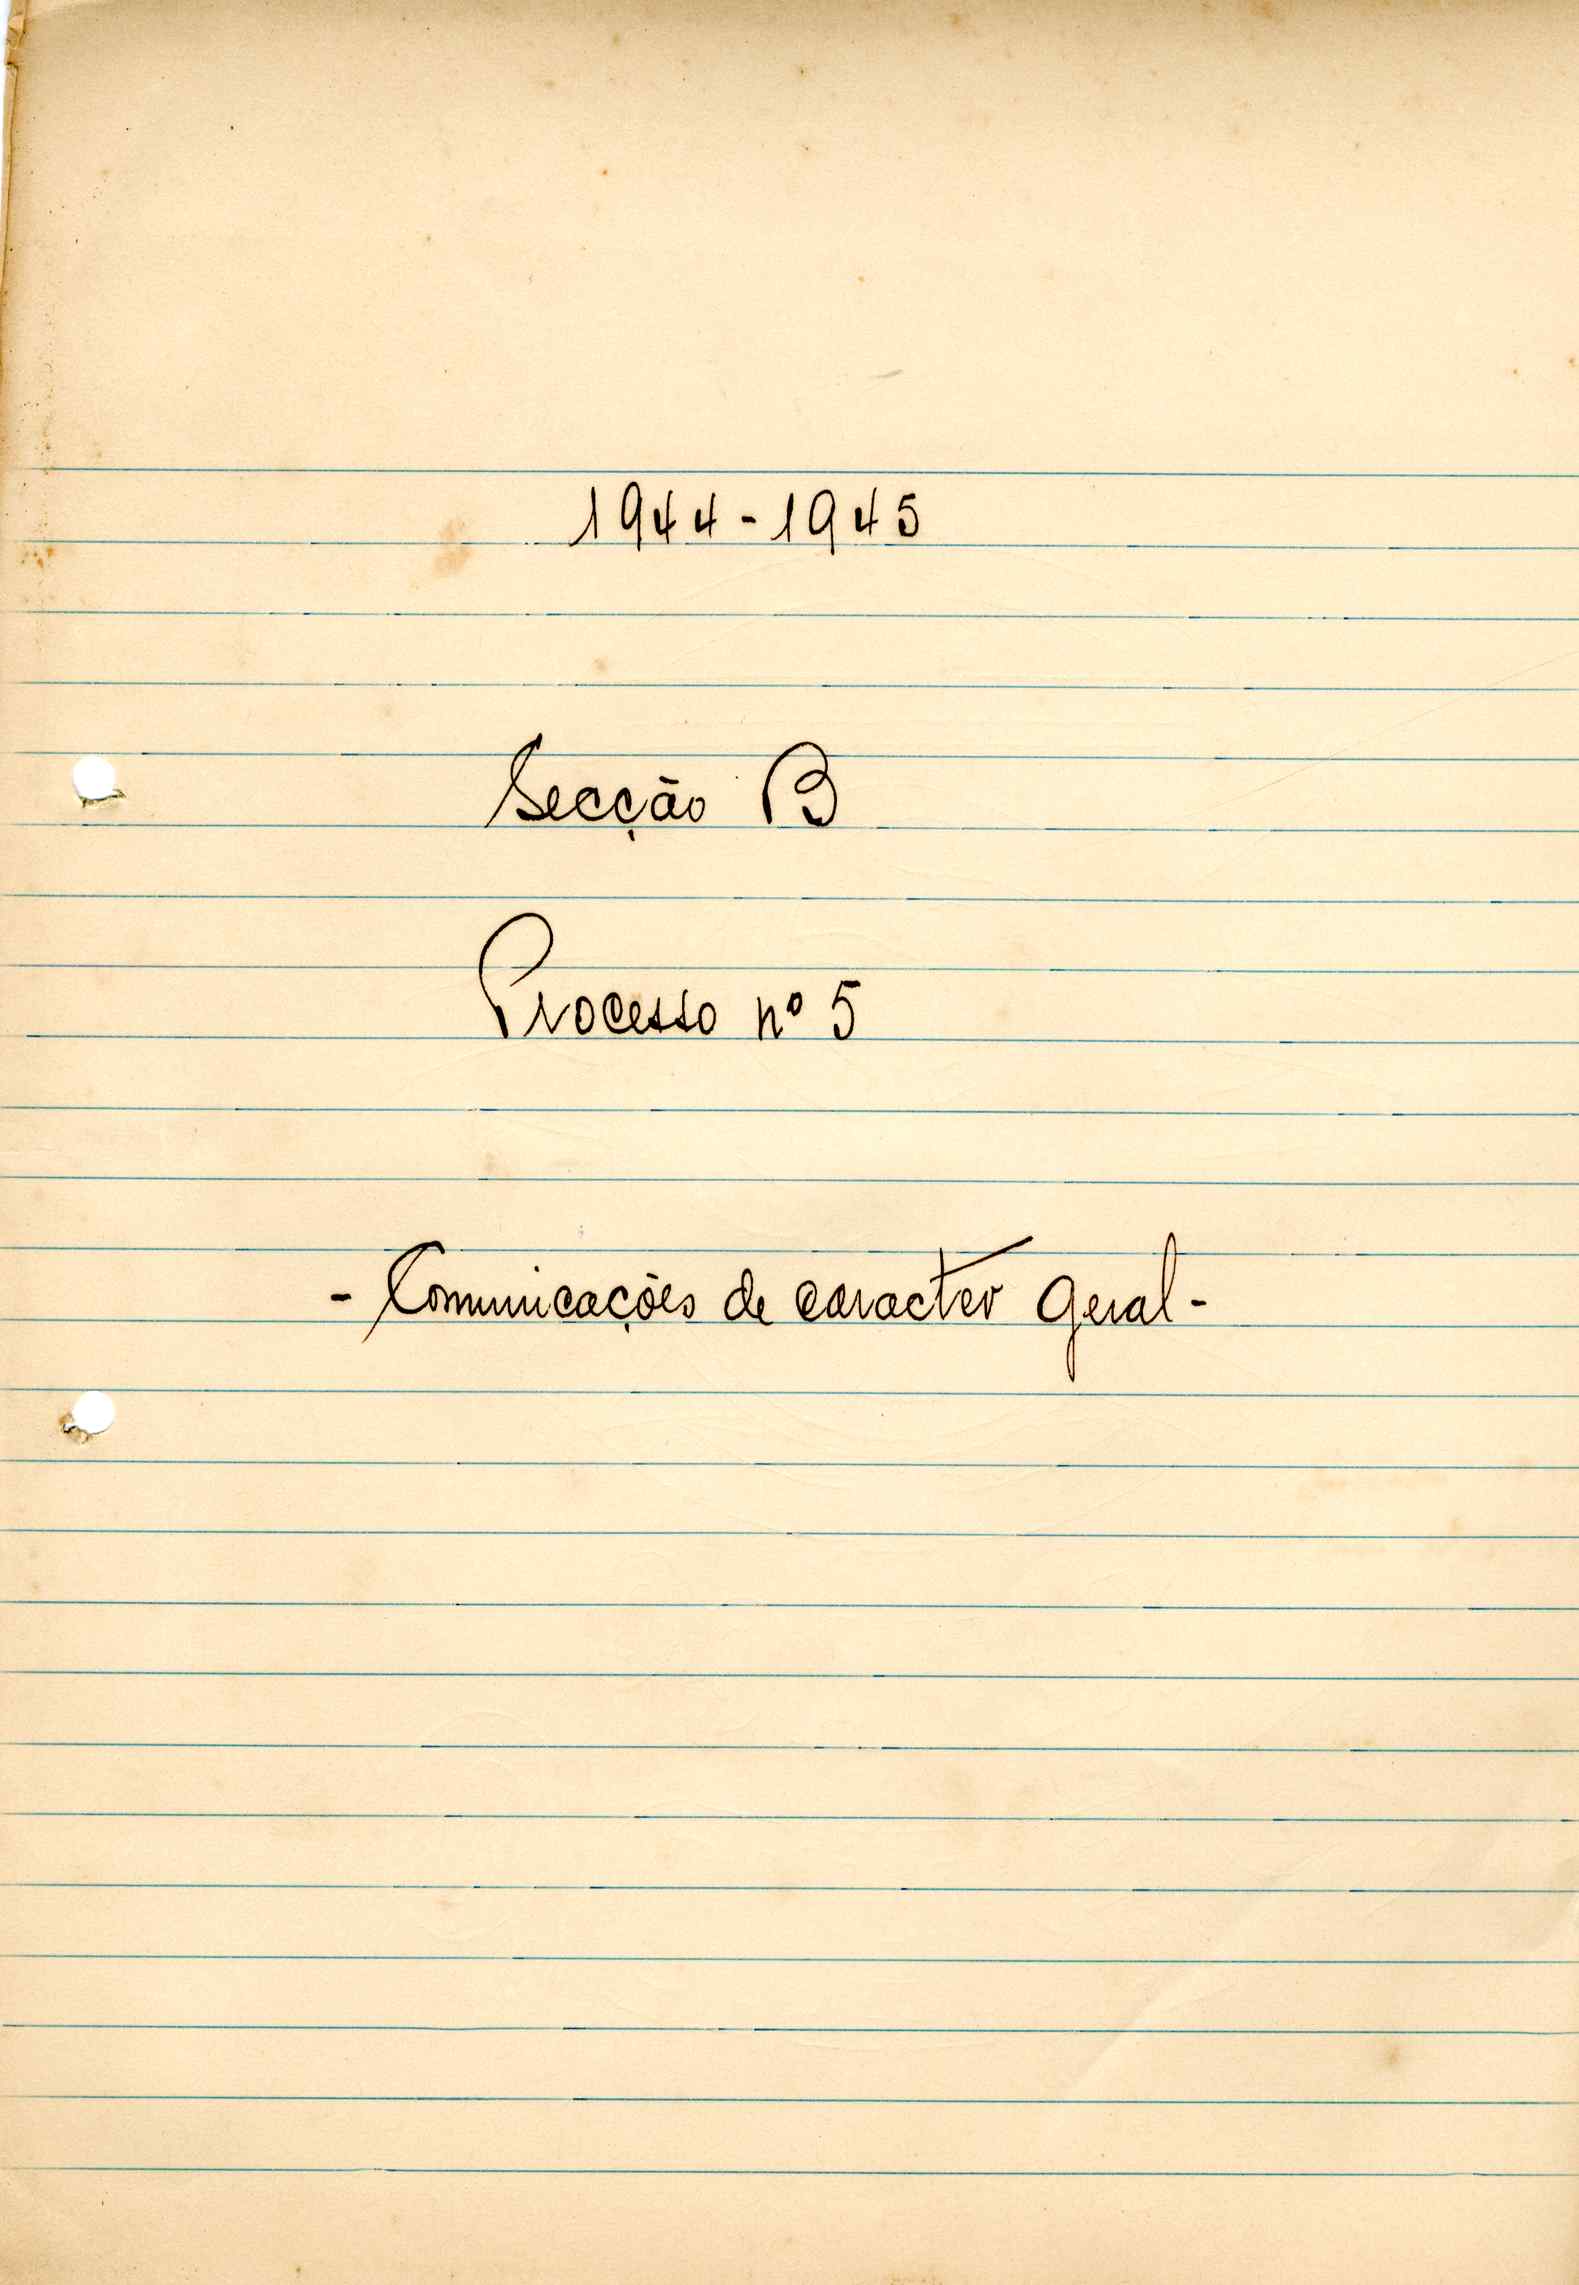 1944-1945
Secção B
Processo nº 5
- Comunicações de caracter geral -